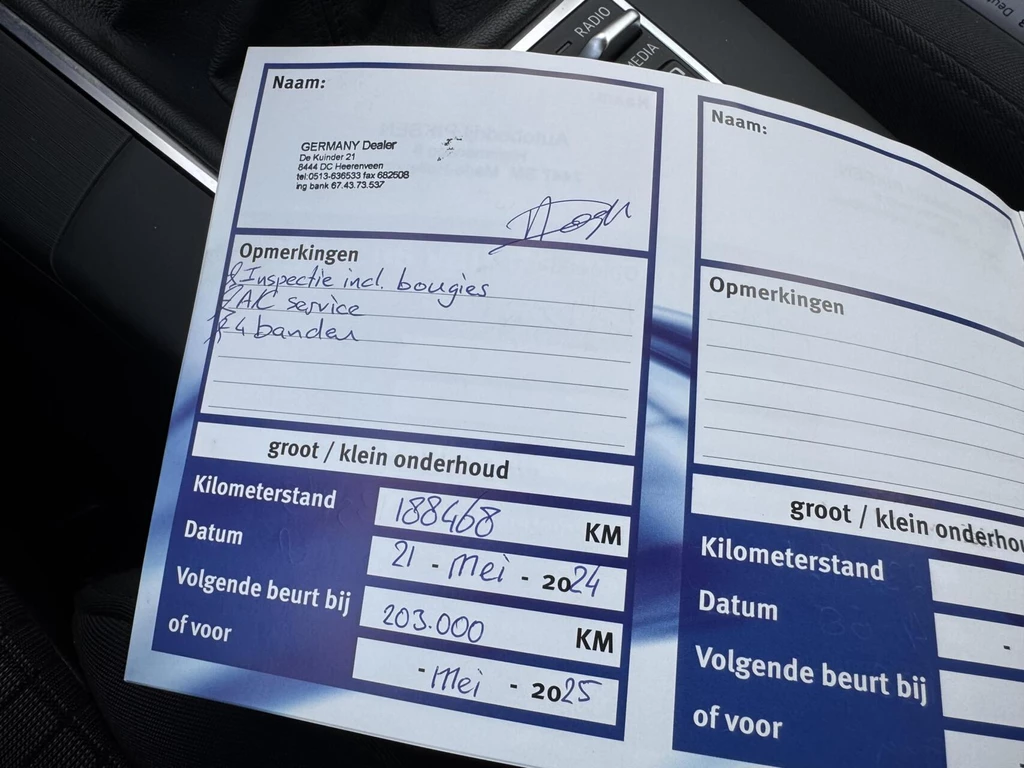 RADIO
MEDIA
Naam:
GERMANY Dealer
De Kuinder 21
8444 DC Heerenveen
tel:0513-636533 fax 682508
ing bank 67.43.73.537
Opmerkingen
Inspectie incl. bougies
A/C service
4 banden
groot / klein onderhoud
Kilometerstand 188468 KM
Datum 21 - Mei - 2024
Volgende beurt bij 203.000 KM
of voor - Mei - 2025
Naam:
Opmerkingen
groot / klein onderhou
Kilometerstand
Datum -
Volgende beurt bij
of voor